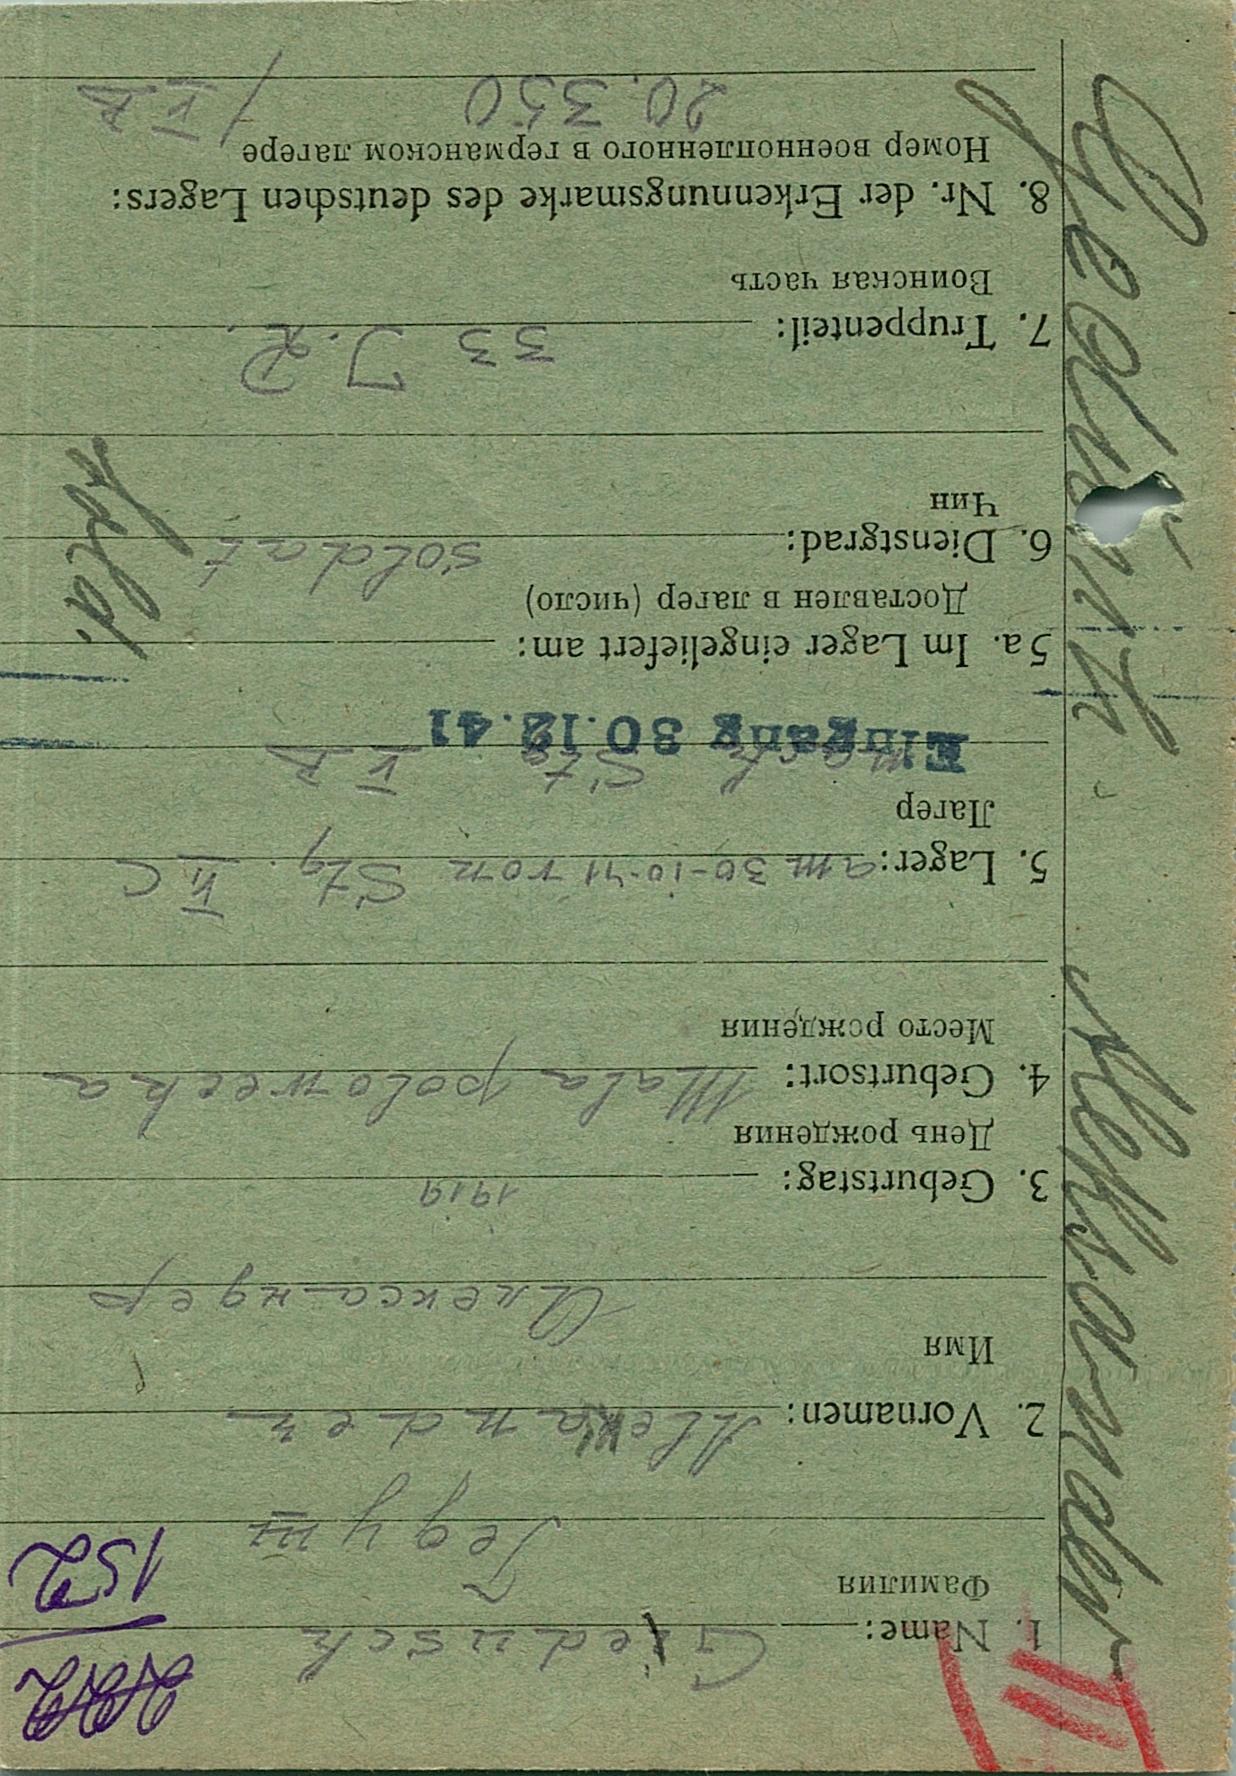 152
1. Name: Giedusch
Фамилия
Гедуш
2. Vornamen: Alexander
Имя
Александер
3. Geburtstag: 1919
День рождения
4. Geburtsort: Mala polowecka
Место рождения
5. Lager: am 30-10-41 von Stg. V C
Лагер
nach Stg V B
Eingang 30.12.41
5a. Im Lager eingeliefert am:
Доставлен в лагер (число)
6. Dienstgrad: Soldat
Чин
Sold.
7. Truppenteil: 33 J.R.
Воинская часть
8. Nr. der Erkennungsmarke des deutschen Lagers:
Номер военнопленного в германском лагере
20.350 / V B
Gedusch. Aleksander